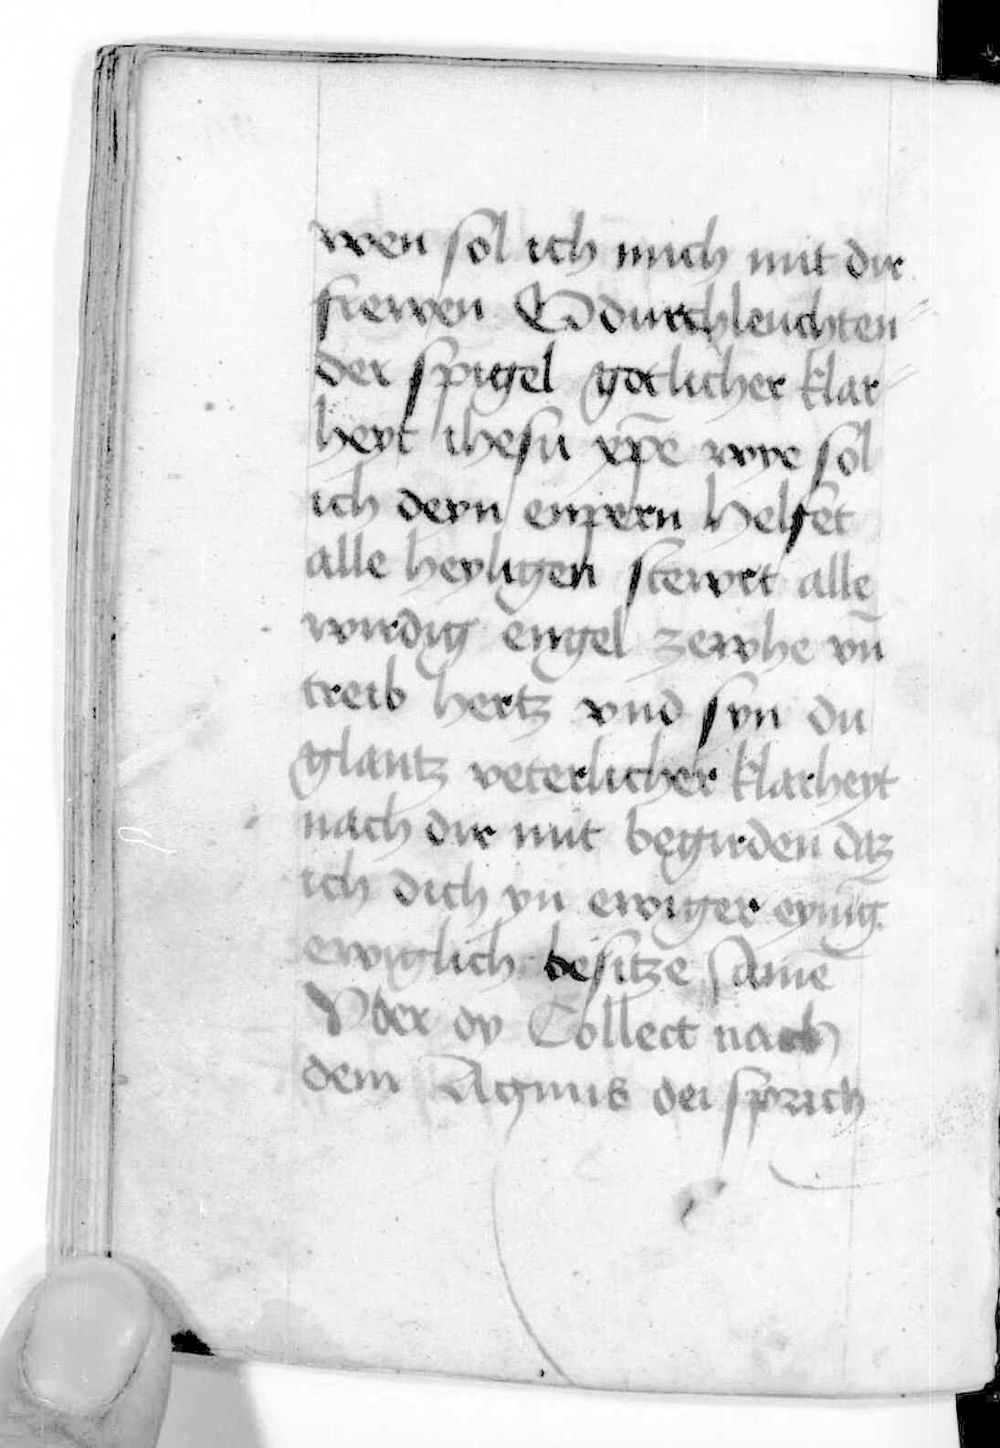 wen sol ich mich mit dir
frewen O durchleuchten⸗
der spigel gotlicher klar⸗
heyt ihesu xp̄e wye sol
ich deyn enpern helfet
alle heyligen stewrt alle
wirdig engel zewhe vn̄
treib hertz vnd syn du
glantz veterlicher klarheyt
nach dir mit begirden daz
ich dich yn ewiger eyniḡ
ewiglich besitze Amē
Vber dy Collect nach
dem Agnus dei sprich